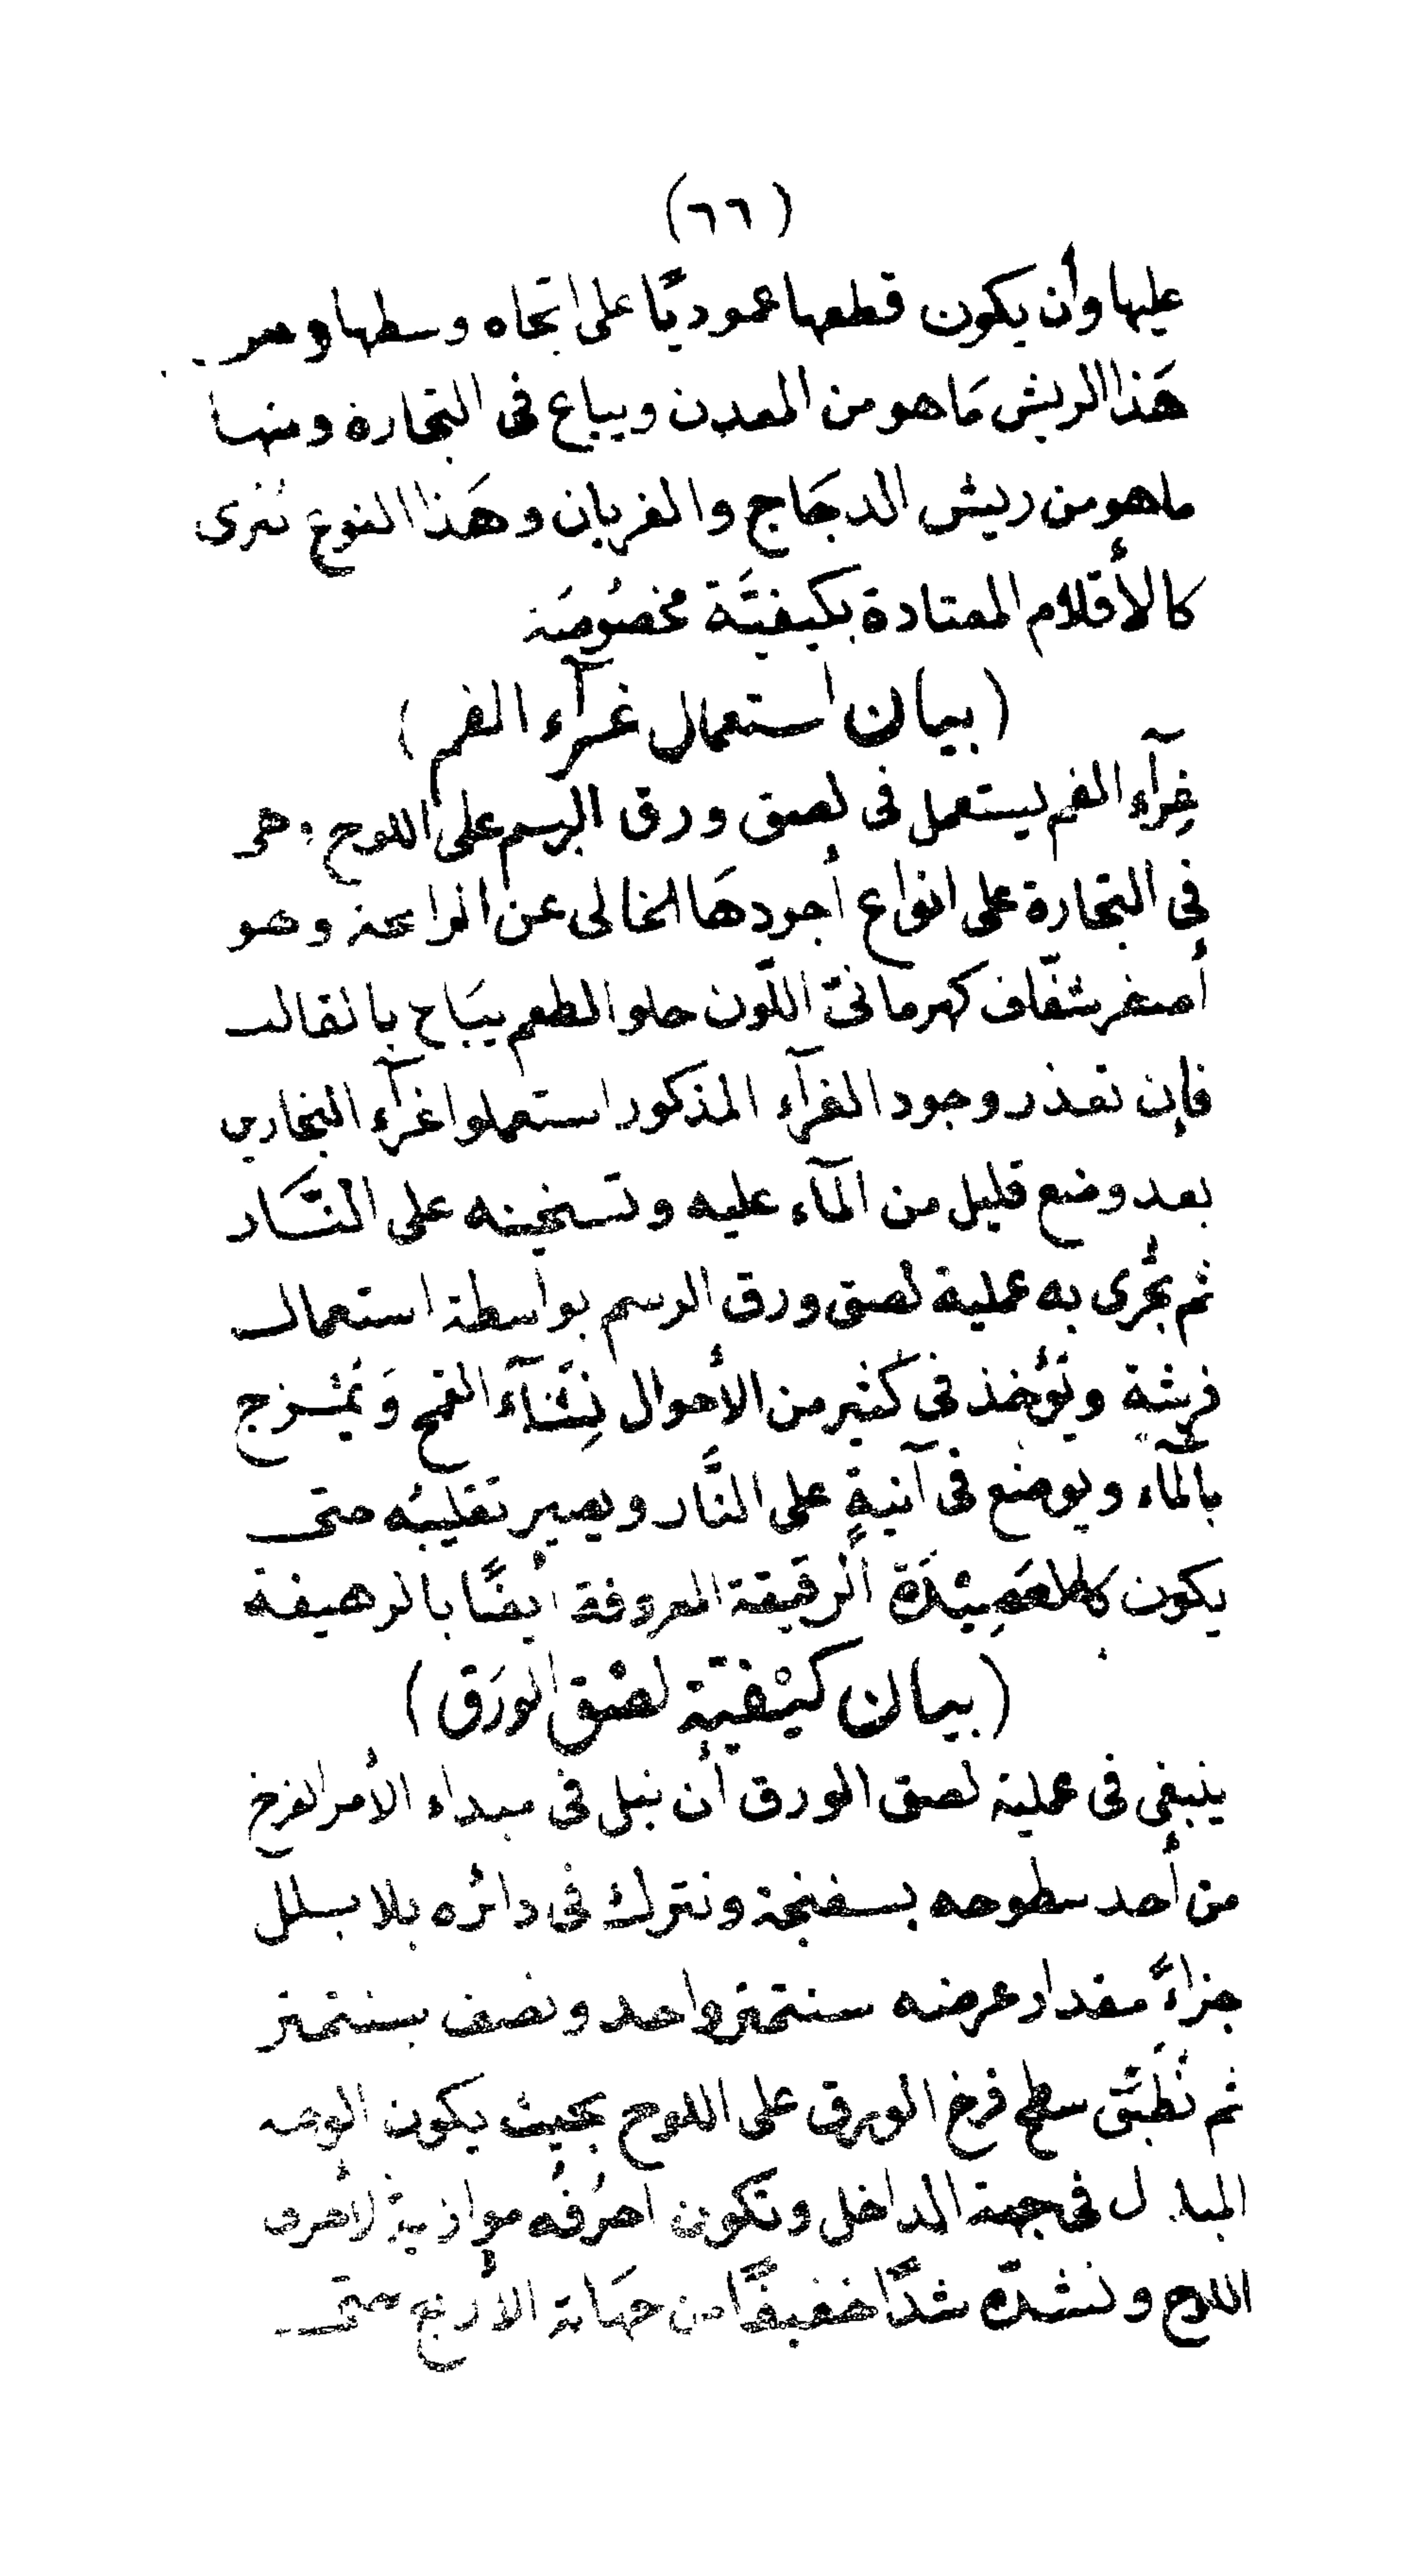 (٦٦)
عليها وأن يكون قطعها عموديًّا على اتجاه وسطها ومن
هَذا الريش مَا هو من المعدن ويباع فى التجارة ومنها
ما هو من ريش الدجَاج والغربان وهَذا النوع تبرى
كالأقلام المعتادة بكيفيَّة مخصُوصَة
(بيان استعمال غرآء الفم)
غِرآء الفم يستعمل فى لصق ورق الرسم على اللوح وهى
فى التجارة على انواع أجودهَا الخالى عن الرائحة وهو
أصفر شفّاف كهرمانىّ اللّون حلو الطعم يبَاع بالقالب
فإن تعذر وجود الغرآء المذكور استعملوا غرآء النجارين
بعد وضع قليل من المآء عليه وتسخينه على النَّار
ثم يُجرى به عملية لصق ورق الرسم بواسطة استعمال
فرشة ويُؤخذ فى كثير من الأحوال نِشَآء القمح وَيُمْزج
بالمآء ويوضع فى آنيةٍ على النَّار ويصير تقليبُه حتى
يكون كالعَصِيْدَة الرقيقة المعروفة ايضًا بالرهيفة
(بيان كَيْفيّة لصْق الورَق)
ينبغى فى عملية لصق الورق أن نبل فى مبداء الأمر الفرخ
من أحد سطوحه بسفنجة ونترك فى دائره بلا بلل
جزاءً مقدار عرضه سنتمتر واحد ونصف سنتمتر
ثم نُطَبّق سطح فرخ الورق على اللوح بحيث يكون الوجه
المبلول فى جهة الداخل وتكون احرُفُه موازية لأحرف
اللوح ونشدّه شدًّا خفيفًا من جهَاته الأربع حتى